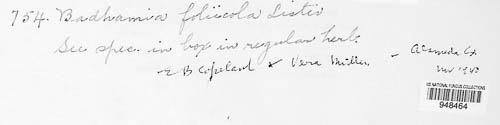 754. Badhamia foliicola Lister
See spec. in box in regular herb.
- E B Copeland & Vera Miller - Alameda Co
Nov 1940
US NATIONAL FUNGUS COLLECTIONS
948464